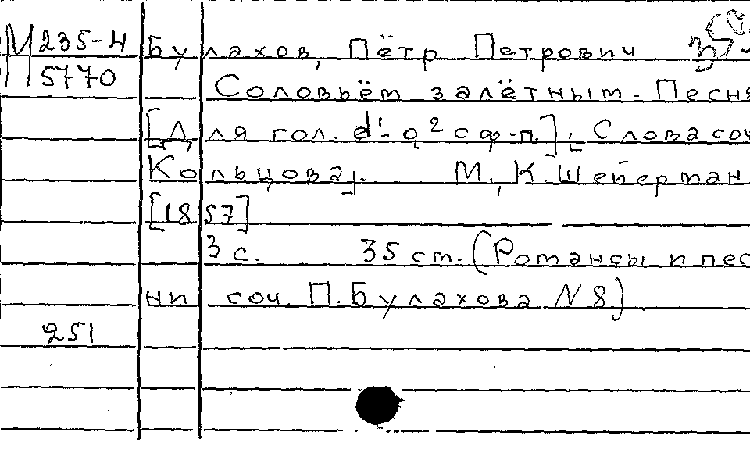 М 235-4 Булахов, Пётр Петрович
5770 Соловьём залётным. Песня
[Для гол. d'-g2 с ф-п.]; Слова соч
Кольцова. М., К. Шейерман
[1857]
3 с. 35 cm. (Романсы и пес
ни соч. П. Булахова N 8)
251